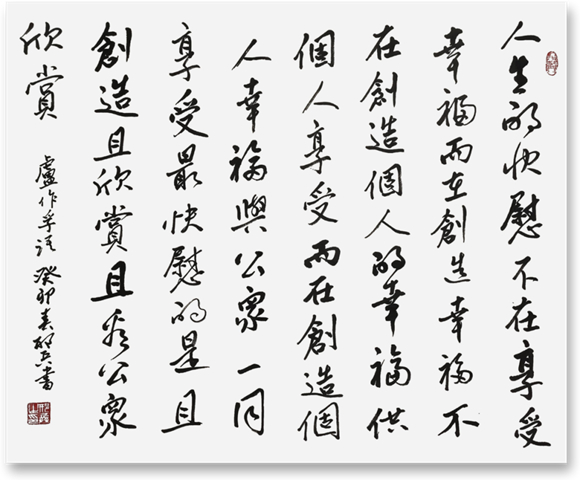 人生的快慰不在享受
幸福而在創造幸福不
在創造個人的幸福供
個人享受而在創造個
人幸福與公眾一同
享受最快慰的是且
創造且欣賞且看公眾
欣賞
盧作孚語 癸卯春書